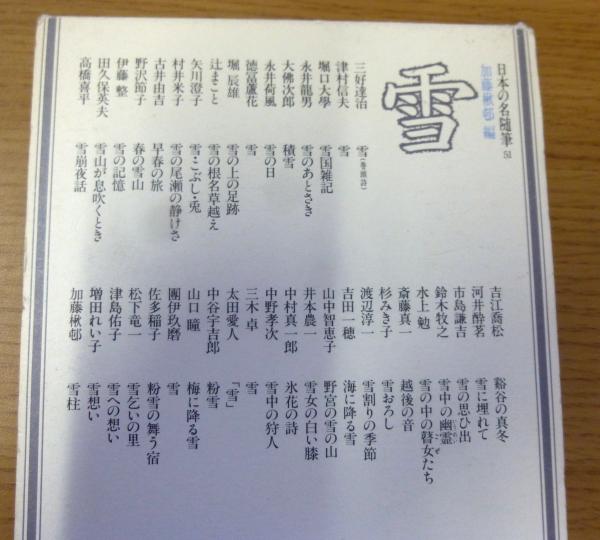 日本の名随筆 51
加藤楸邨 編
雪
三好達治 雪(巻頭詩)
津村信夫 雪
堀口大學 雪国雑記
永井龍男 雪のあとさき
大佛次郎 積雪
永井荷風 雪の日
徳冨蘆花 雪
堀 辰雄 雪の上の足跡
辻まこと 雪の根名草越え
矢川澄子 雪・こぶし・兎
村井米子 雪の尾瀬の静けさ
古井由吉 早春の旅
野沢節子 春の雪山
伊藤 整 雪の記憶
田久保英夫 雪山が息吹くとき
高橋喜平 雪崩夜話
吉江喬松 谿谷の真冬
河井酔茗 雪に埋れて
市島謙吉 雪の思ひ出
鈴木牧之 雪中の幽霊
水上 勉 雪の中の瞽女たち
斎藤真一 越後の音
杉みき子 雪おろし
渡辺淳一 雪割りの季節
吉田一穂 海に降る雪
山中智恵子 野宮の雪の山
井本農一 雪女の白い膝
中村真一郎 氷花の詩
中野孝次 雪中の狩人
三木 卓 雪
太田愛人 「雪」
中谷宇吉郎 粉雪
山口 瞳 梅に降る雪
團伊玖磨 雪
佐多稲子 粉雪の舞う宿
松下竜一 雪乞いの里
津島佑子 雪への想い
増田れい子 雪想い
加藤楸邨 雪柱